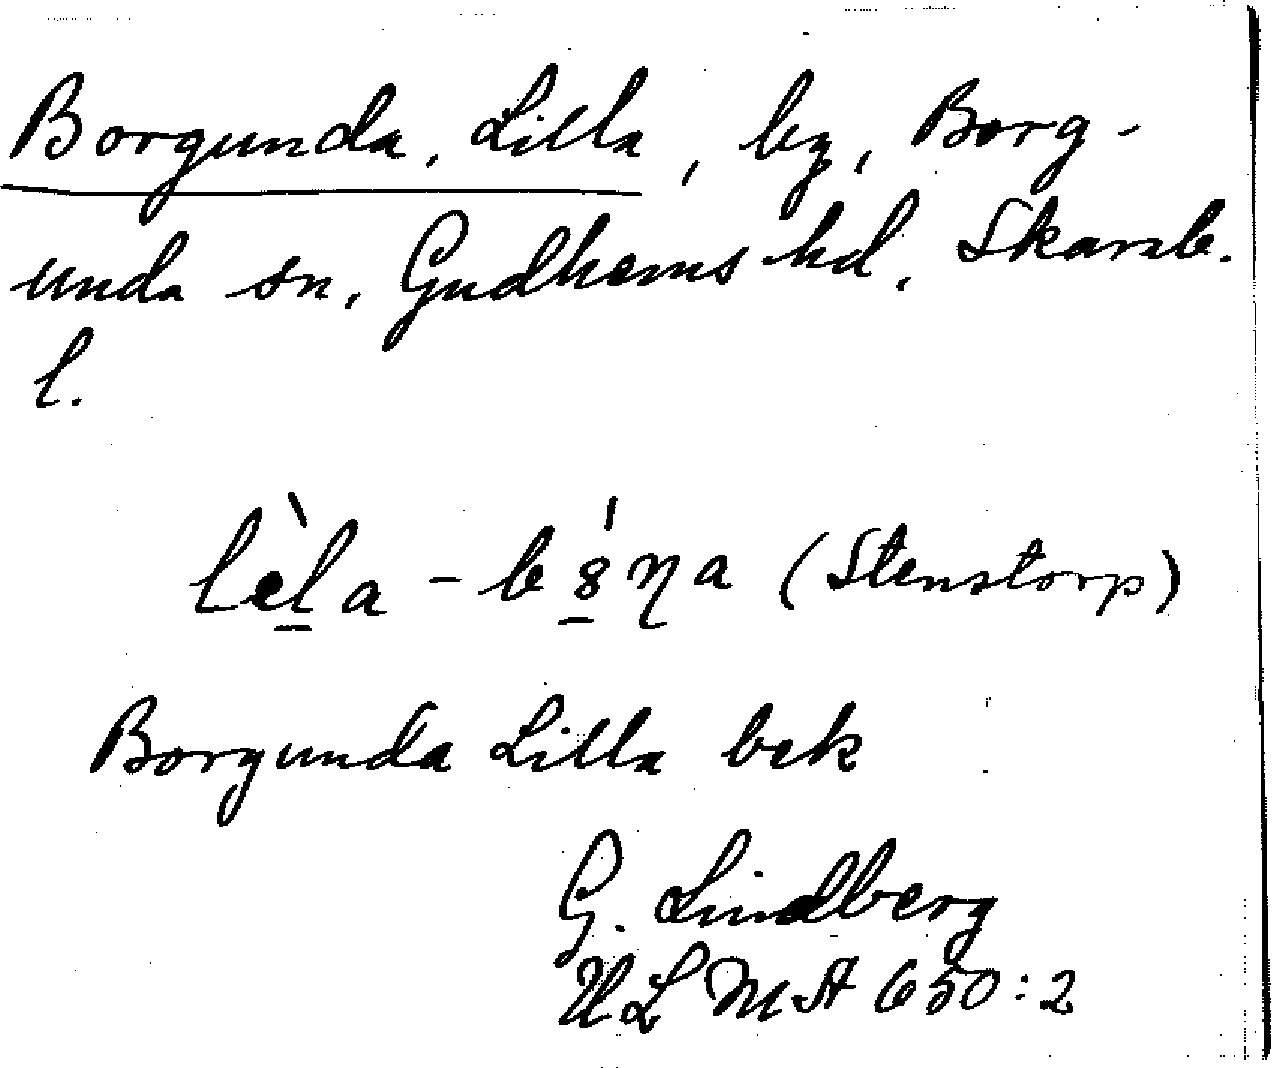 Borgunda, Lilla, by, Borg-
unda sn, Gudhems hd, Skarab.
l.
lèl̲a - bó̲ŋa (Stenstorp)
Borgunda Lilla bek
G. Lindberg
ULMA 650:2